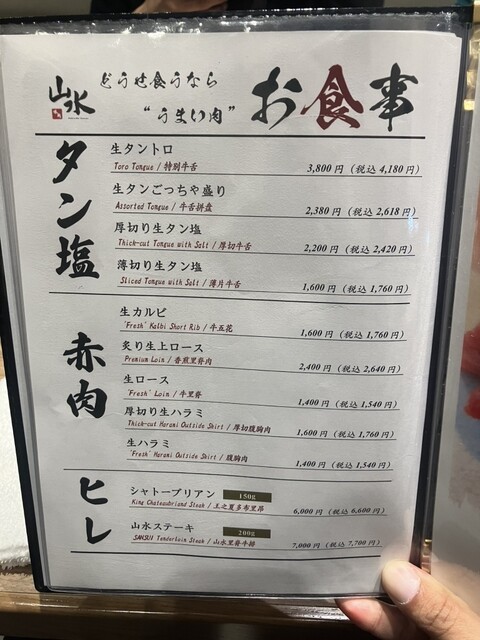 山水
どうせ食うなら
“うまい肉”
お食事
タン塩
生タントロ
Toro Tongue / 特別牛舌
3,800 円 (税込 4,180 円)
生タンごっちゃ盛り
Assorted Tongue / 牛舌拼盘
2,380 円 (税込 2,618 円)
厚切り生タン塩
Thick-cut Tongue with Salt / 厚切牛舌
2,200 円 (税込 2,420 円)
薄切り生タン塩
Sliced Tongue with Salt / 薄片牛舌
1,600 円 (税込 1,760 円)
赤肉
生カルビ
"Fresh" Kalbi Short Rib / 牛五花
1,600 円 (税込 1,760 円)
炙り生上ロース
Premium Loin / 香煎里脊肉
2,400 円 (税込 2,640 円)
生ロース
"Fresh" Loin / 牛里脊
1,400 円 (税込 1,540 円)
厚切り生ハラミ
Thick-cut Harami Outside Skirt / 厚切腹胸肉
1,600 円 (税込 1,760 円)
生ハラミ
"Fresh" Harami Outside Skirt / 腹胸肉
1,400 円 (税込 1,540 円)
ヒレ
シャトーブリアン 150g
King Chateaubriand Steak / 王之夏多布里昂
6,000 円 (税込 6,600 円)
山水ステーキ 200g
SANSUI Tenderloin Steak / 山水里脊牛排
7,000 円 (税込 7,700 円)